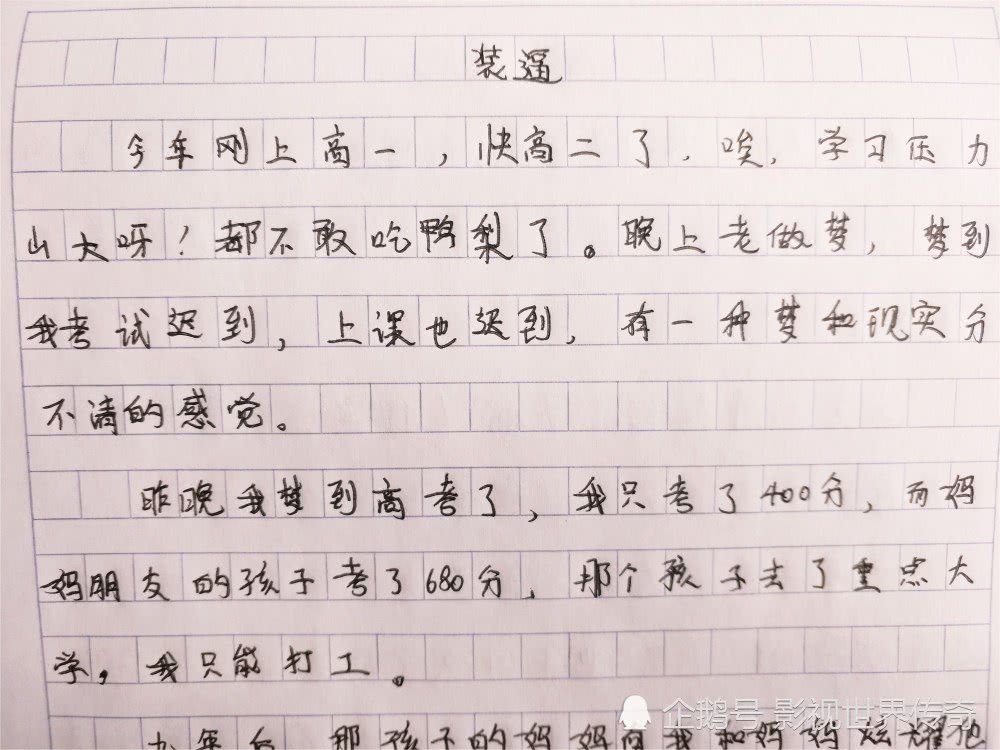 装逼
今年刚上高一，快高二了．唉，学习压力
山大呀！都不敢吃鸭梨了。晚上老做梦，梦到
我考试迟到，上课也迟到，有一种梦和现实分
不清的感觉。
昨晚我梦到高考了，我只考了400分，而妈
妈朋友的孩子考了680分，那个孩子去了重点大
学，我只能打工。
九年后，那孩子的妈妈向我和妈妈炫耀他
企鹅号 影视世界传奇